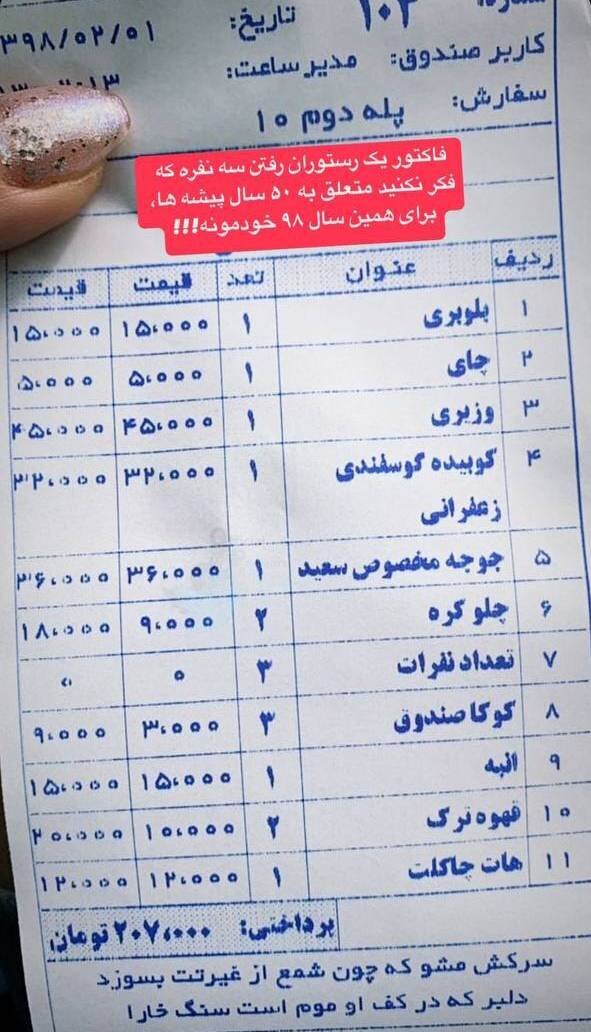 شماره: ۱۰۲
تاریخ: ۳۹۸/۰۲/۰۱
کاربر صندوق: مدیر ساعت:
سفارش: پله دوم ۱۰
فاکتور یک رستوران رفتن سه نفره که
فکر نکنید متعلق به ۵۰ سال پیشه ها،
برای همین سال ۹۸ خودمونه!!!
ردیف عنوان تعدد قیمت قیمت
۱ بلوبری ۱ ۱۵،۰۰۰ ۱۵،۰۰۰
۲ چای ۱ ۵،۰۰۰ ۵،۰۰۰
۳ وزیری ۱ ۴۵،۰۰۰ ۴۵،۰۰۰
۴ کوبیده گوسفندی ۱ ۳۲،۰۰۰ ۳۲،۰۰۰
زعفرانی
۵ جوجه مخصوص سعید ۱ ۳۶،۰۰۰ ۳۶،۰۰۰
۶ چلو کره ۲ ۹،۰۰۰ ۱۸،۰۰۰
۷ تعداد نفرات ۳ ۰ ۰
۸ کوکا صندوق ۳ ۳،۰۰۰ ۹،۰۰۰
۹ انبه ۱ ۱۵،۰۰۰ ۱۵،۰۰۰
۱۰ قهوه ترک ۲ ۱۰،۰۰۰ ۲۰،۰۰۰
۱۱ هات چاکلت ۱ ۱۲،۰۰۰ ۱۲،۰۰۰
پرداختی: ۲۰۷،۰۰۰ تومان
سرکش مشو که چون شمع از غیرتت بسوزد
دلبر که در کف او موم است سنگ خارا